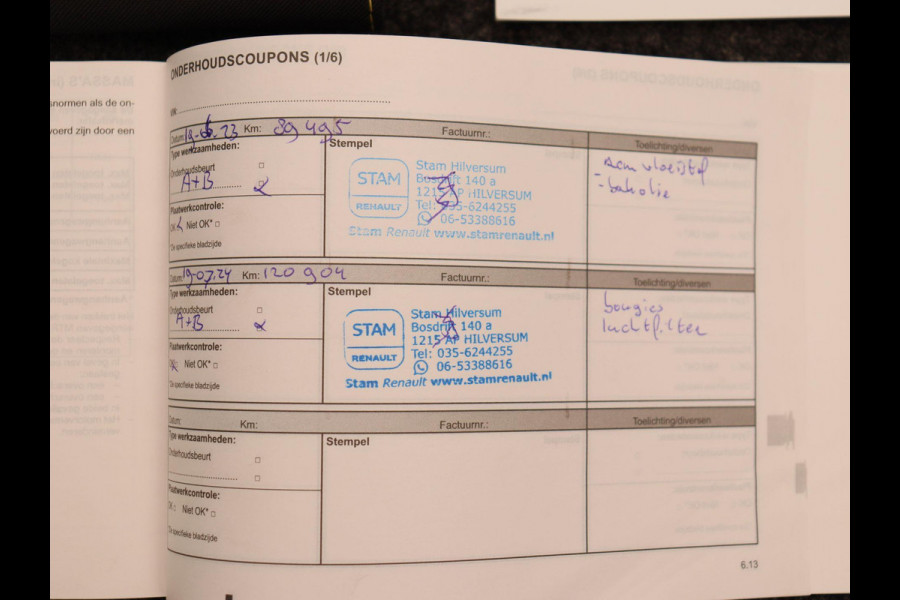 snormen als de on-
voerd zijn door een
ONDERHOUDSCOUPONS (1/6)
VIN:
Datum: 19-6-23 Km: 89 495 Factuurnr.: Toelichting/diversen
Type werkzaamheden:
Stempel
Onderhoudsbeurt
A+B
Plaatwerkcontrole:
OK Niet OK*
*Zie specifieke bladzijde
STAM
RENAULT
Stam Hilversum
Bosdrift 140 a
1215 AP HILVERSUM
Tel: 035-6244255
06-53388616
Stam Renault www.stamrenault.nl
Rem vloeistof
- bakolie
Datum: 19-07-24 Km: 120 904 Factuurnr.: Toelichting/diversen
Type werkzaamheden:
Stempel
Onderhoudsbeurt
A+B
Plaatwerkcontrole:
OK Niet OK*
*Zie specifieke bladzijde
STAM
RENAULT
Stam Hilversum
Bosdrift 140 a
1215 AP HILVERSUM
Tel: 035-6244255
06-53388616
Stam Renault www.stamrenault.nl
bougies
luchtfilter
Datum: Km: Factuurnr.: Toelichting/diversen
Type werkzaamheden:
Stempel
Onderhoudsbeurt
Plaatwerkcontrole:
OK Niet OK*
*Zie specifieke bladzijde
6.13